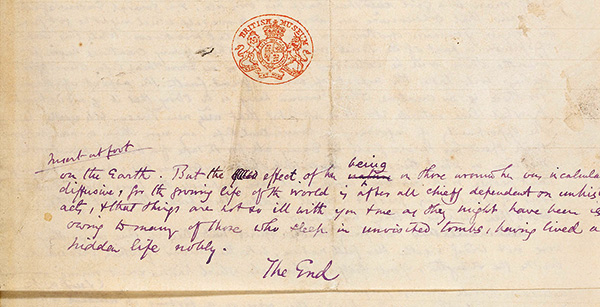 BRITISH MUSEUM
Insert at foot
being
on the Earth. But the effect of her nature on those around her was incalcula
diffusive; for the growing life of the world is after all chiefly dependent on unhist
acts, & that things are not so ill with you & me as they might have been is
owing to many of those who sleep in unvisited tombs, having lived a
hidden life nobly.
The End